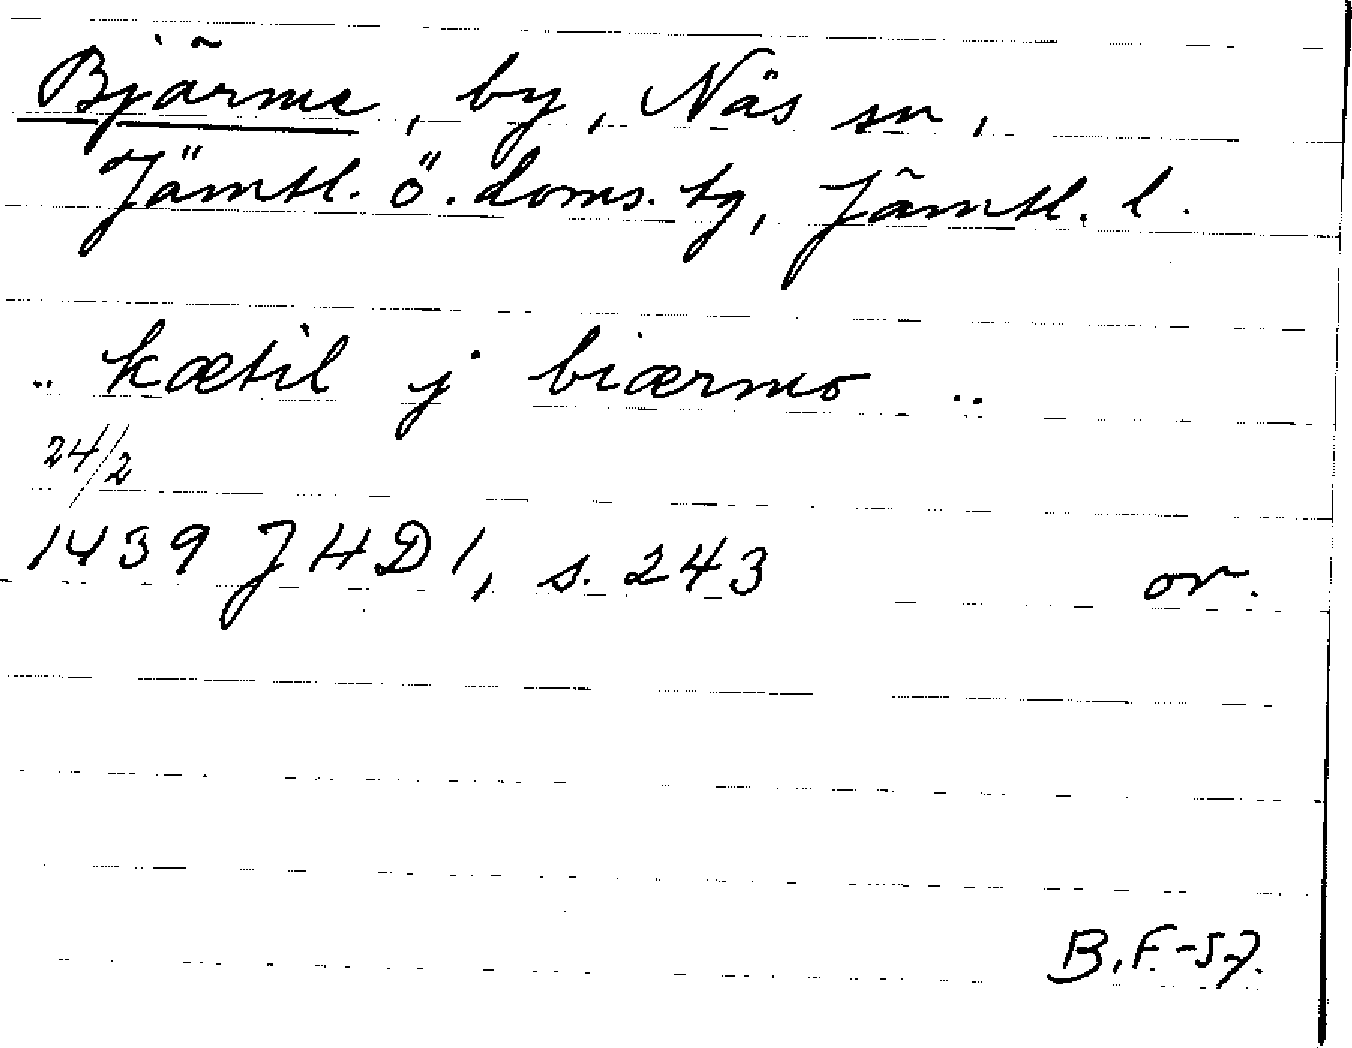 Bjärme, by, Näs sn,
Jämtl. ö. doms. tg, Jämtl. l.
.. kætil j biærmo ..
24/2
1439 JHD 1, s. 243 or.
B.F.-57.